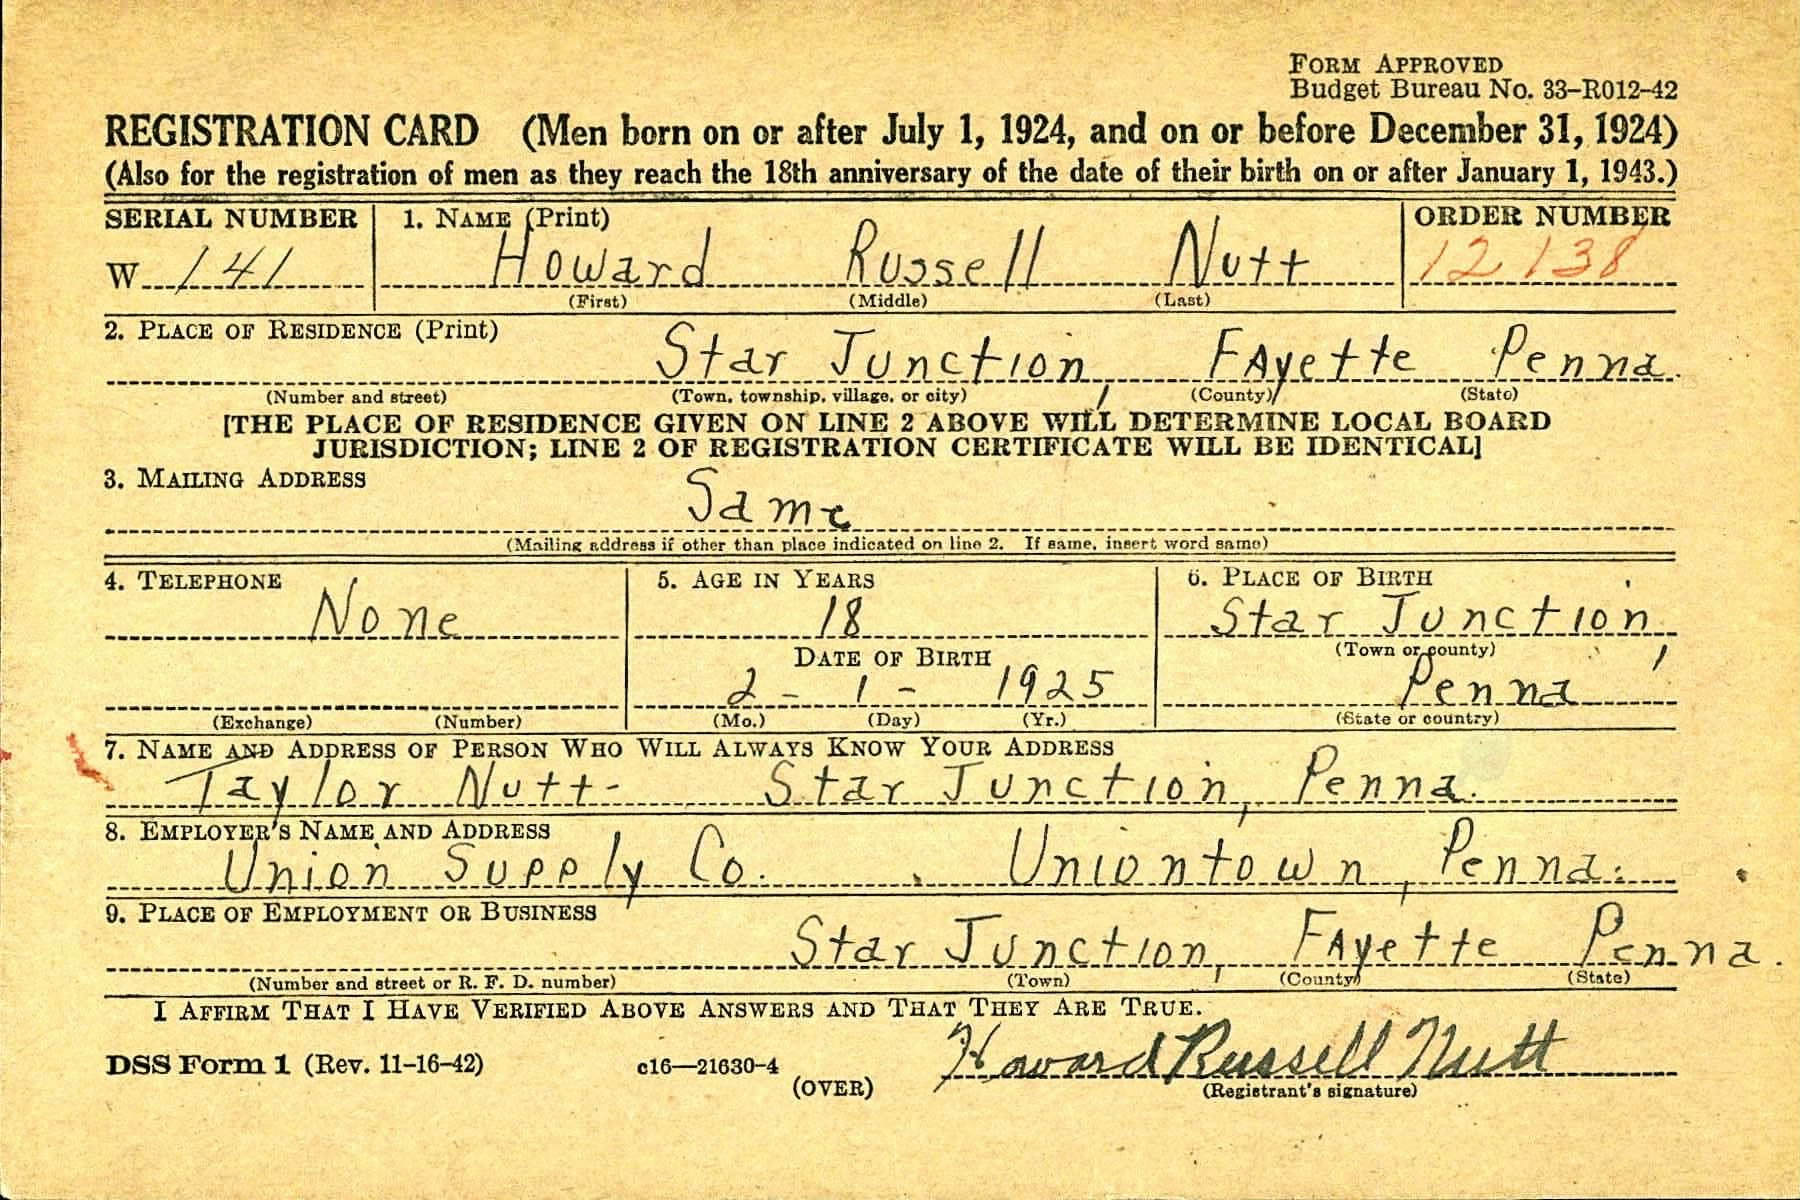 FORM APPROVED
Budget Bureau No. 33–R012–42
REGISTRATION CARD (Men born on or after July 1, 1924, and on or before December 31, 1924)
(Also for the registration of men as they reach the 18th anniversary of the date of their birth on or after January 1, 1943.)
SERIAL NUMBER 1. NAME (Print) ORDER NUMBER
W 141 Howard Russell Nutt 12138
(First) (Middle) (Last)
2. PLACE OF RESIDENCE (Print)
Star Junction, FAyette Penna.
(Number and street) (Town, township, village, or city) (County) (State)
[THE PLACE OF RESIDENCE GIVEN ON LINE 2 ABOVE WILL DETERMINE LOCAL BOARD
JURISDICTION; LINE 2 OF REGISTRATION CERTIFICATE WILL BE IDENTICAL]
3. MAILING ADDRESS
Same
(Mailing address if other than place indicated on line 2. If same, insert word same)
4. TELEPHONE 5. AGE IN YEARS 6. PLACE OF BIRTH
None 18 Star Junction,
DATE OF BIRTH (Town or county)
2 - 1 - 1925 Penna
(Exchange) (Number) (Mo.) (Day) (Yr.) (State or country)
7. NAME AND ADDRESS OF PERSON WHO WILL ALWAYS KNOW YOUR ADDRESS
Taylor Nutt- Star Junction, Penna.
8. EMPLOYER'S NAME AND ADDRESS
Union Supply Co. Uniontown, Penna.
9. PLACE OF EMPLOYMENT OR BUSINESS
Star Junction, FAyette Penna.
(Number and street or R. F. D. number) (Town) (County) (State)
I AFFIRM THAT I HAVE VERIFIED ABOVE ANSWERS AND THAT THEY ARE TRUE.
DSS Form 1 (Rev. 11–16–42) c16—21630–4 Howard Russell Nutt
(OVER) (Registrant's signature)